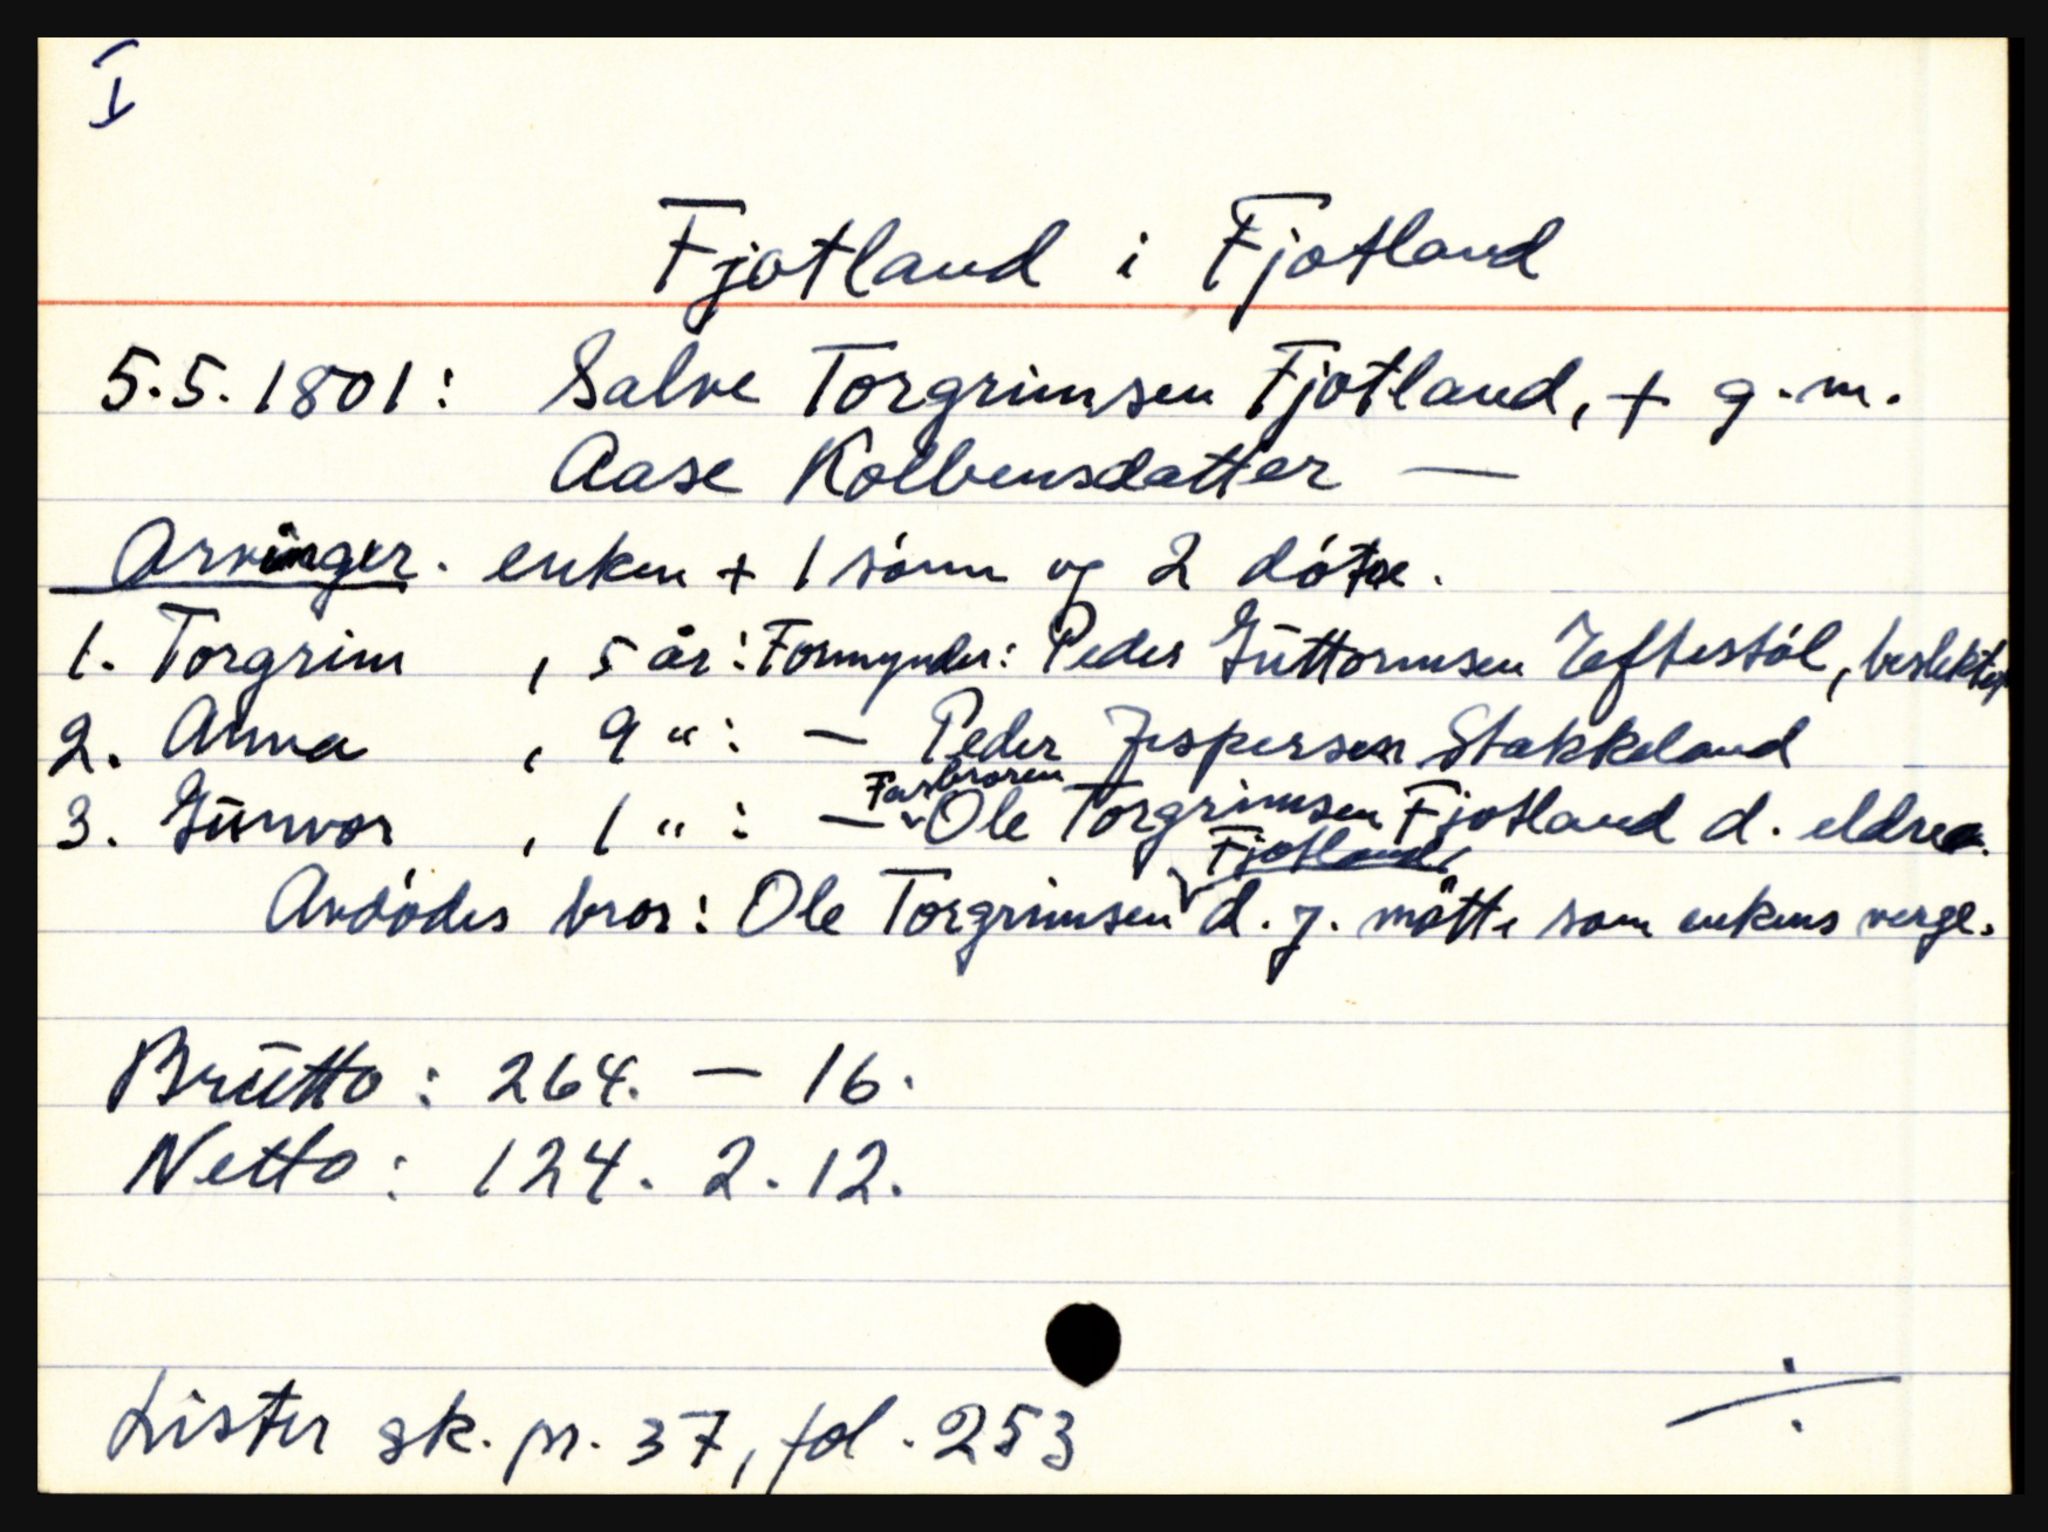 I
Fjotland i Fjotland
5.5.1801: Salve Torgrimsen Fjotland, + g.m.
Aase Kolbensdatter —
Arvinger. enken + 1 sónn og 2 dótre.
1. Torgrim , 5 år: Formynder: Peder Guttormsen Eftestól, beslektet
2. Anna , 9 " : — Peder Jespersen Stakkeland
3. Gunvor , 1 " : — Farbroren Ole Torgrimsen Fjotland d. eldre.
Avdódes bror: Ole Torgrimsen Fjotland d. y. mótte som enkens verge.
Brutto: 264. — 16.
Netto: 124. 2. 12.
Lister sk. pr. 37, fol. 253
÷